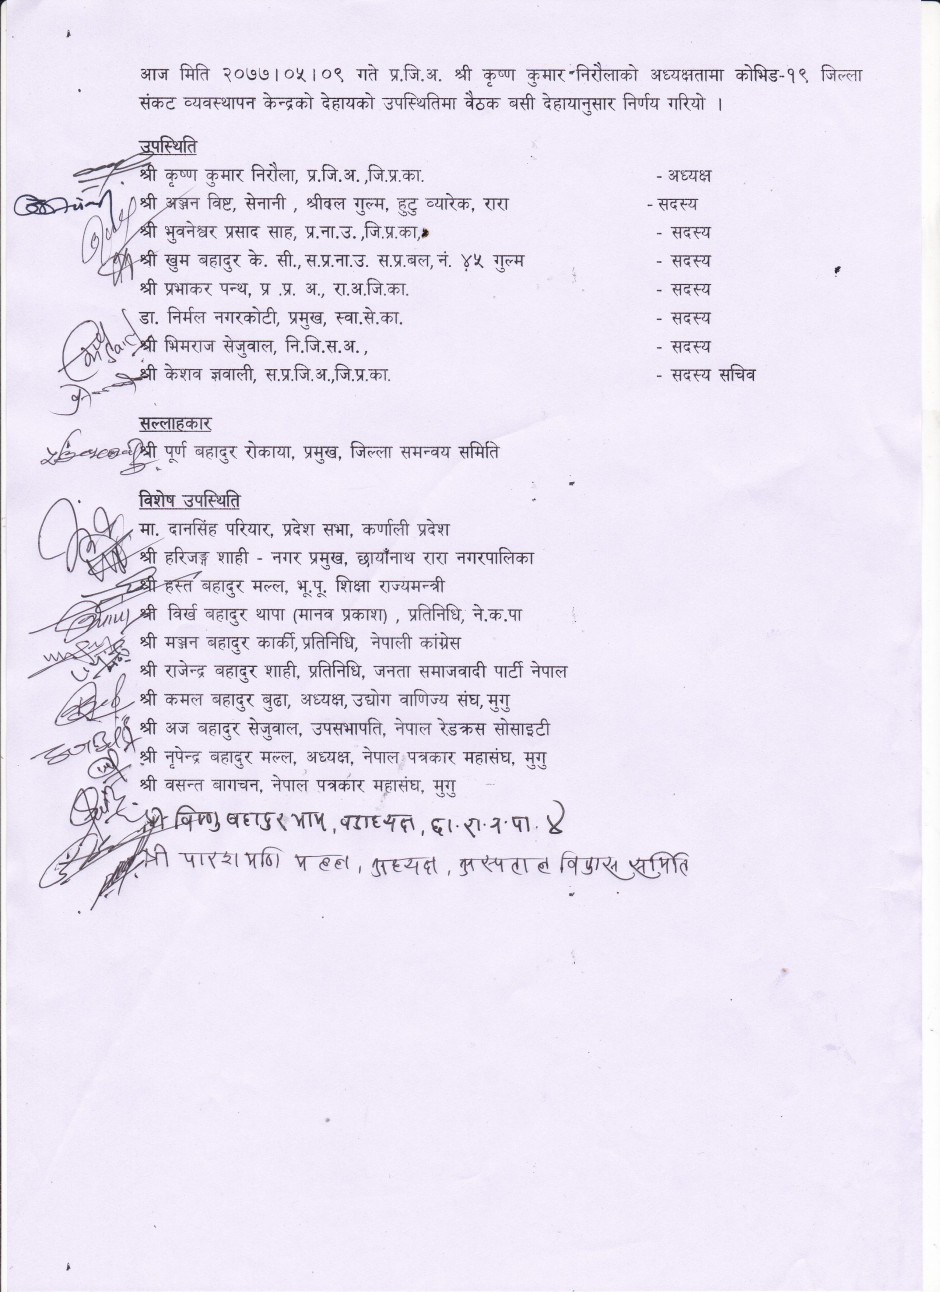 आज मिति २०७७।०५।०९ गते प्र.जि.अ. श्री कृष्ण कुमार निरौलाको अध्यक्षतामा कोभिड-१९ जिल्ला
संकट व्यवस्थापन केन्द्रको देहायको उपस्थितिमा वैठक बसी देहायानुसार निर्णय गरियो ।
उपस्थिति
श्री कृष्ण कुमार निरौला, प्र.जि.अ. ,जि.प्र.का. - अध्यक्ष
श्री अञ्जन विष्ट, सेनानी , श्रीवल गुल्म, हुटु व्यारेक, रारा - सदस्य
श्री भुवनेश्वर प्रसाद साह, प्र.ना.उ. ,जि.प्र.का, - सदस्य
श्री खुम बहादुर के. सी., स.प्र.ना.उ. स.प्र.बल, नं. ४५ गुल्म - सदस्य
श्री प्रभाकर पन्थ, प्र .प्र. अ., रा.अ.जि.का. - सदस्य
डा. निर्मल नगरकोटी, प्रमुख, स्वा.से.का. - सदस्य
श्री भिमराज सेजुवाल, नि.जि.स.अ. , - सदस्य
श्री केशव ज्ञवाली, स.प्र.जि.अ.,जि.प्र.का. - सदस्य सचिव
सल्लाहकार
श्री पूर्ण बहादुर रोकाया, प्रमुख, जिल्ला समन्वय समिति
विशेष उपस्थिति
मा. दानसिंह परियार, प्रदेश सभा, कर्णाली प्रदेश
श्री हरिजङ्ग शाही - नगर प्रमुख, छायाँनाथ रारा नगरपालिका
श्री हस्त बहादुर मल्ल, भू.पू. शिक्षा राज्यमन्त्री
श्री विर्ख बहादुर थापा (मानव प्रकाश) , प्रतिनिधि, ने.क.पा
श्री मञ्जन बहादुर कार्की, प्रतिनिधि, नेपाली कांग्रेस
श्री राजेन्द्र बहादुर शाही, प्रतिनिधि, जनता समाजवादी पार्टी नेपाल
श्री कमल बहादुर बुढा, अध्यक्ष, उद्योग वाणिज्य संघ, मुगु
श्री अज बहादुर सेजुवाल, उपसभापति, नेपाल रेडक्रस सोसाइटी
श्री नृपेन्द्र बहादुर मल्ल, अध्यक्ष, नेपाल पत्रकार महासंघ, मुगु
श्री वसन्त बागचन, नेपाल पत्रकार महासंघ, मुगु
श्री विष्णु बहादुर भाम, वडाध्यक्ष, छा.रा.न.पा. ४
श्री पारशमणि मल्ल, अध्यक्ष, अस्पताल विकास समिति